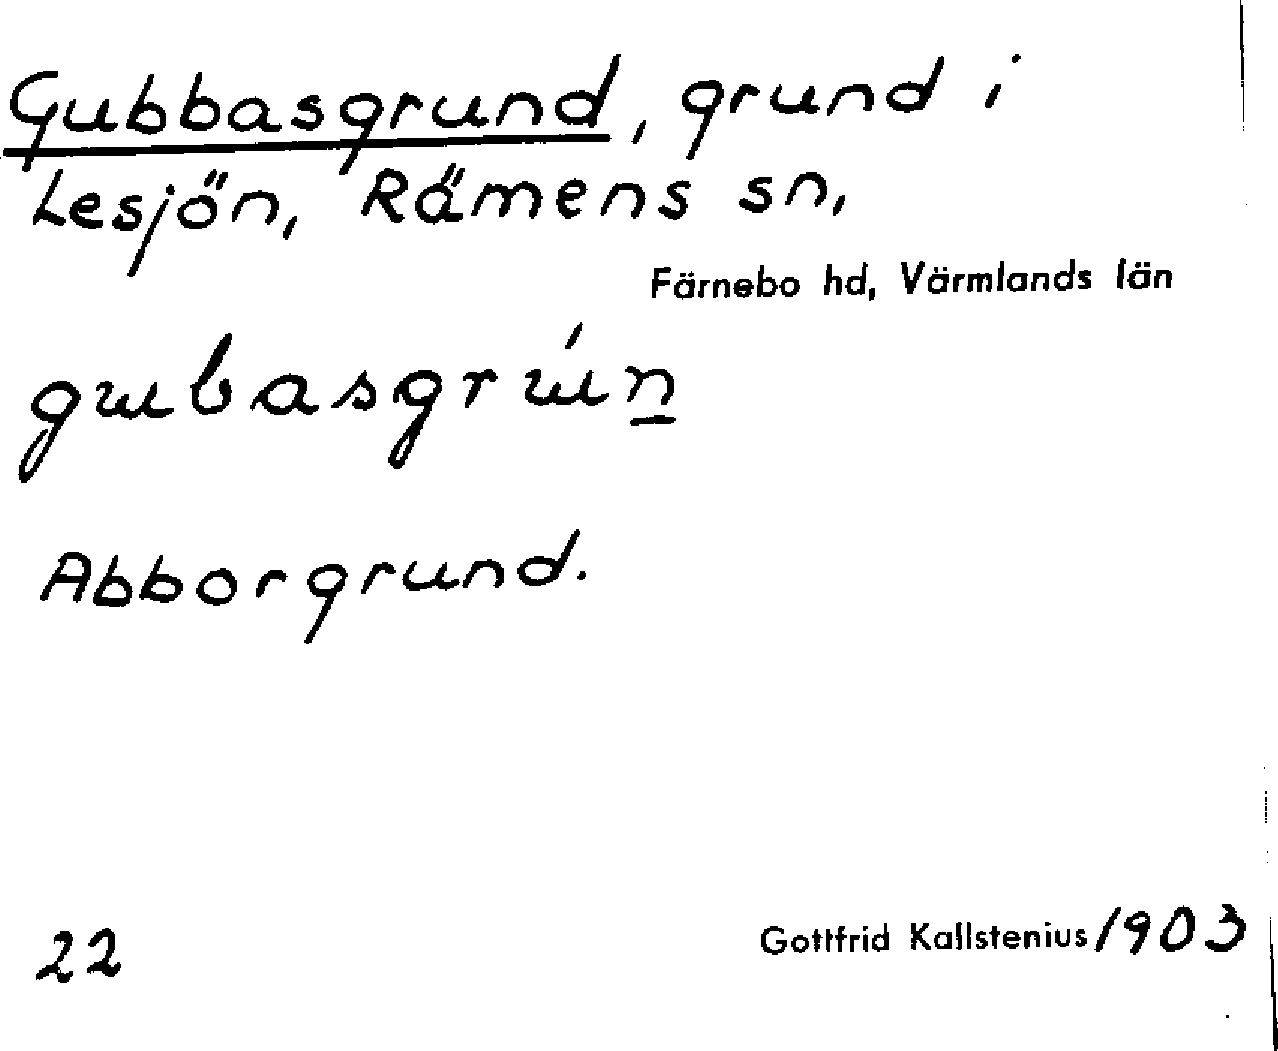 Gubbasgrund, grund i
Lesjön, Rämens sn,
Färnebo hd, Värmlands län
gubasgrún
Abborgrund.
22
Gottfrid Kallstenius 1903